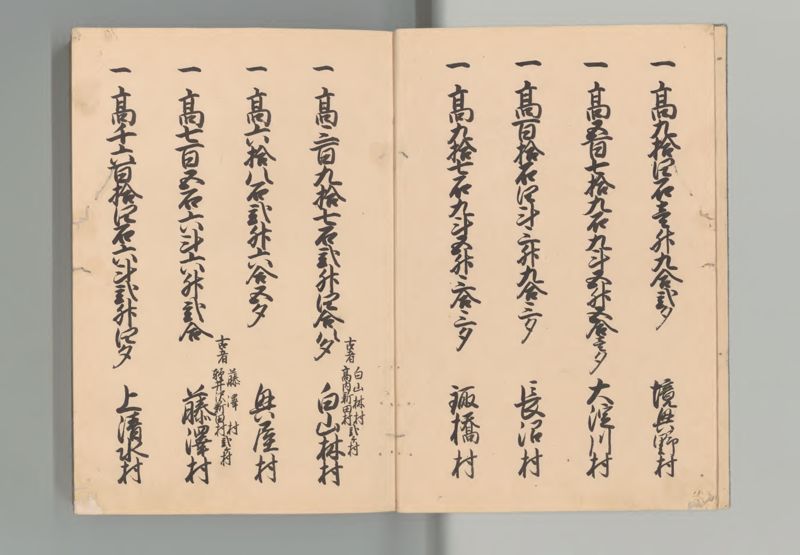 一 高九拾四石壱升九合弐夕 境興野村
一 高五百七拾九石九斗五升五合壱夕 大淀川村
一 高百拾石四斗三升九合三夕 長沼村
一 高九拾七石九斗五升六合三夕 橋村
一 高三百九拾七石弐升四合八夕 白山林村
古者 白山林村
高内新田村 弐ケ村
一 高六拾八石弐升六合五夕 興屋村
一 高七百五石六斗六升弐合 藤澤村
古者 藤澤村
軽井沢新田村 弐ケ村
一 高千六百拾四石六斗弐升四夕 上清水村